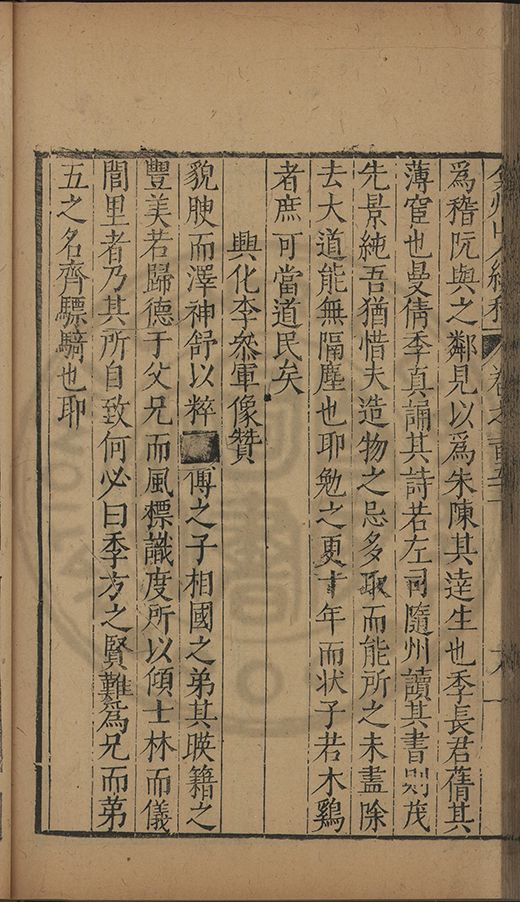 為嵇阮與之鄰見以為朱陳其達生也季長君舊僭其
薄宦也曼倩季真誦其詩若左司隨州讀其書則茂
先景純吾猶惜夫造物之忌多取而能所之未盡除
去大道能無隔塵也耶勉之更十年而狀子若木鷄
者庶可當道民矣
興化李叅軍像贊
貌腴而澤神舒以粹
傅之子相國之弟其暎籍之
豐美若歸德于父兄而風標識度所以傾士林而儀
閭里者乃其所自致何必曰季方之賢難為兄而弟
五之名齊驃騎也耶